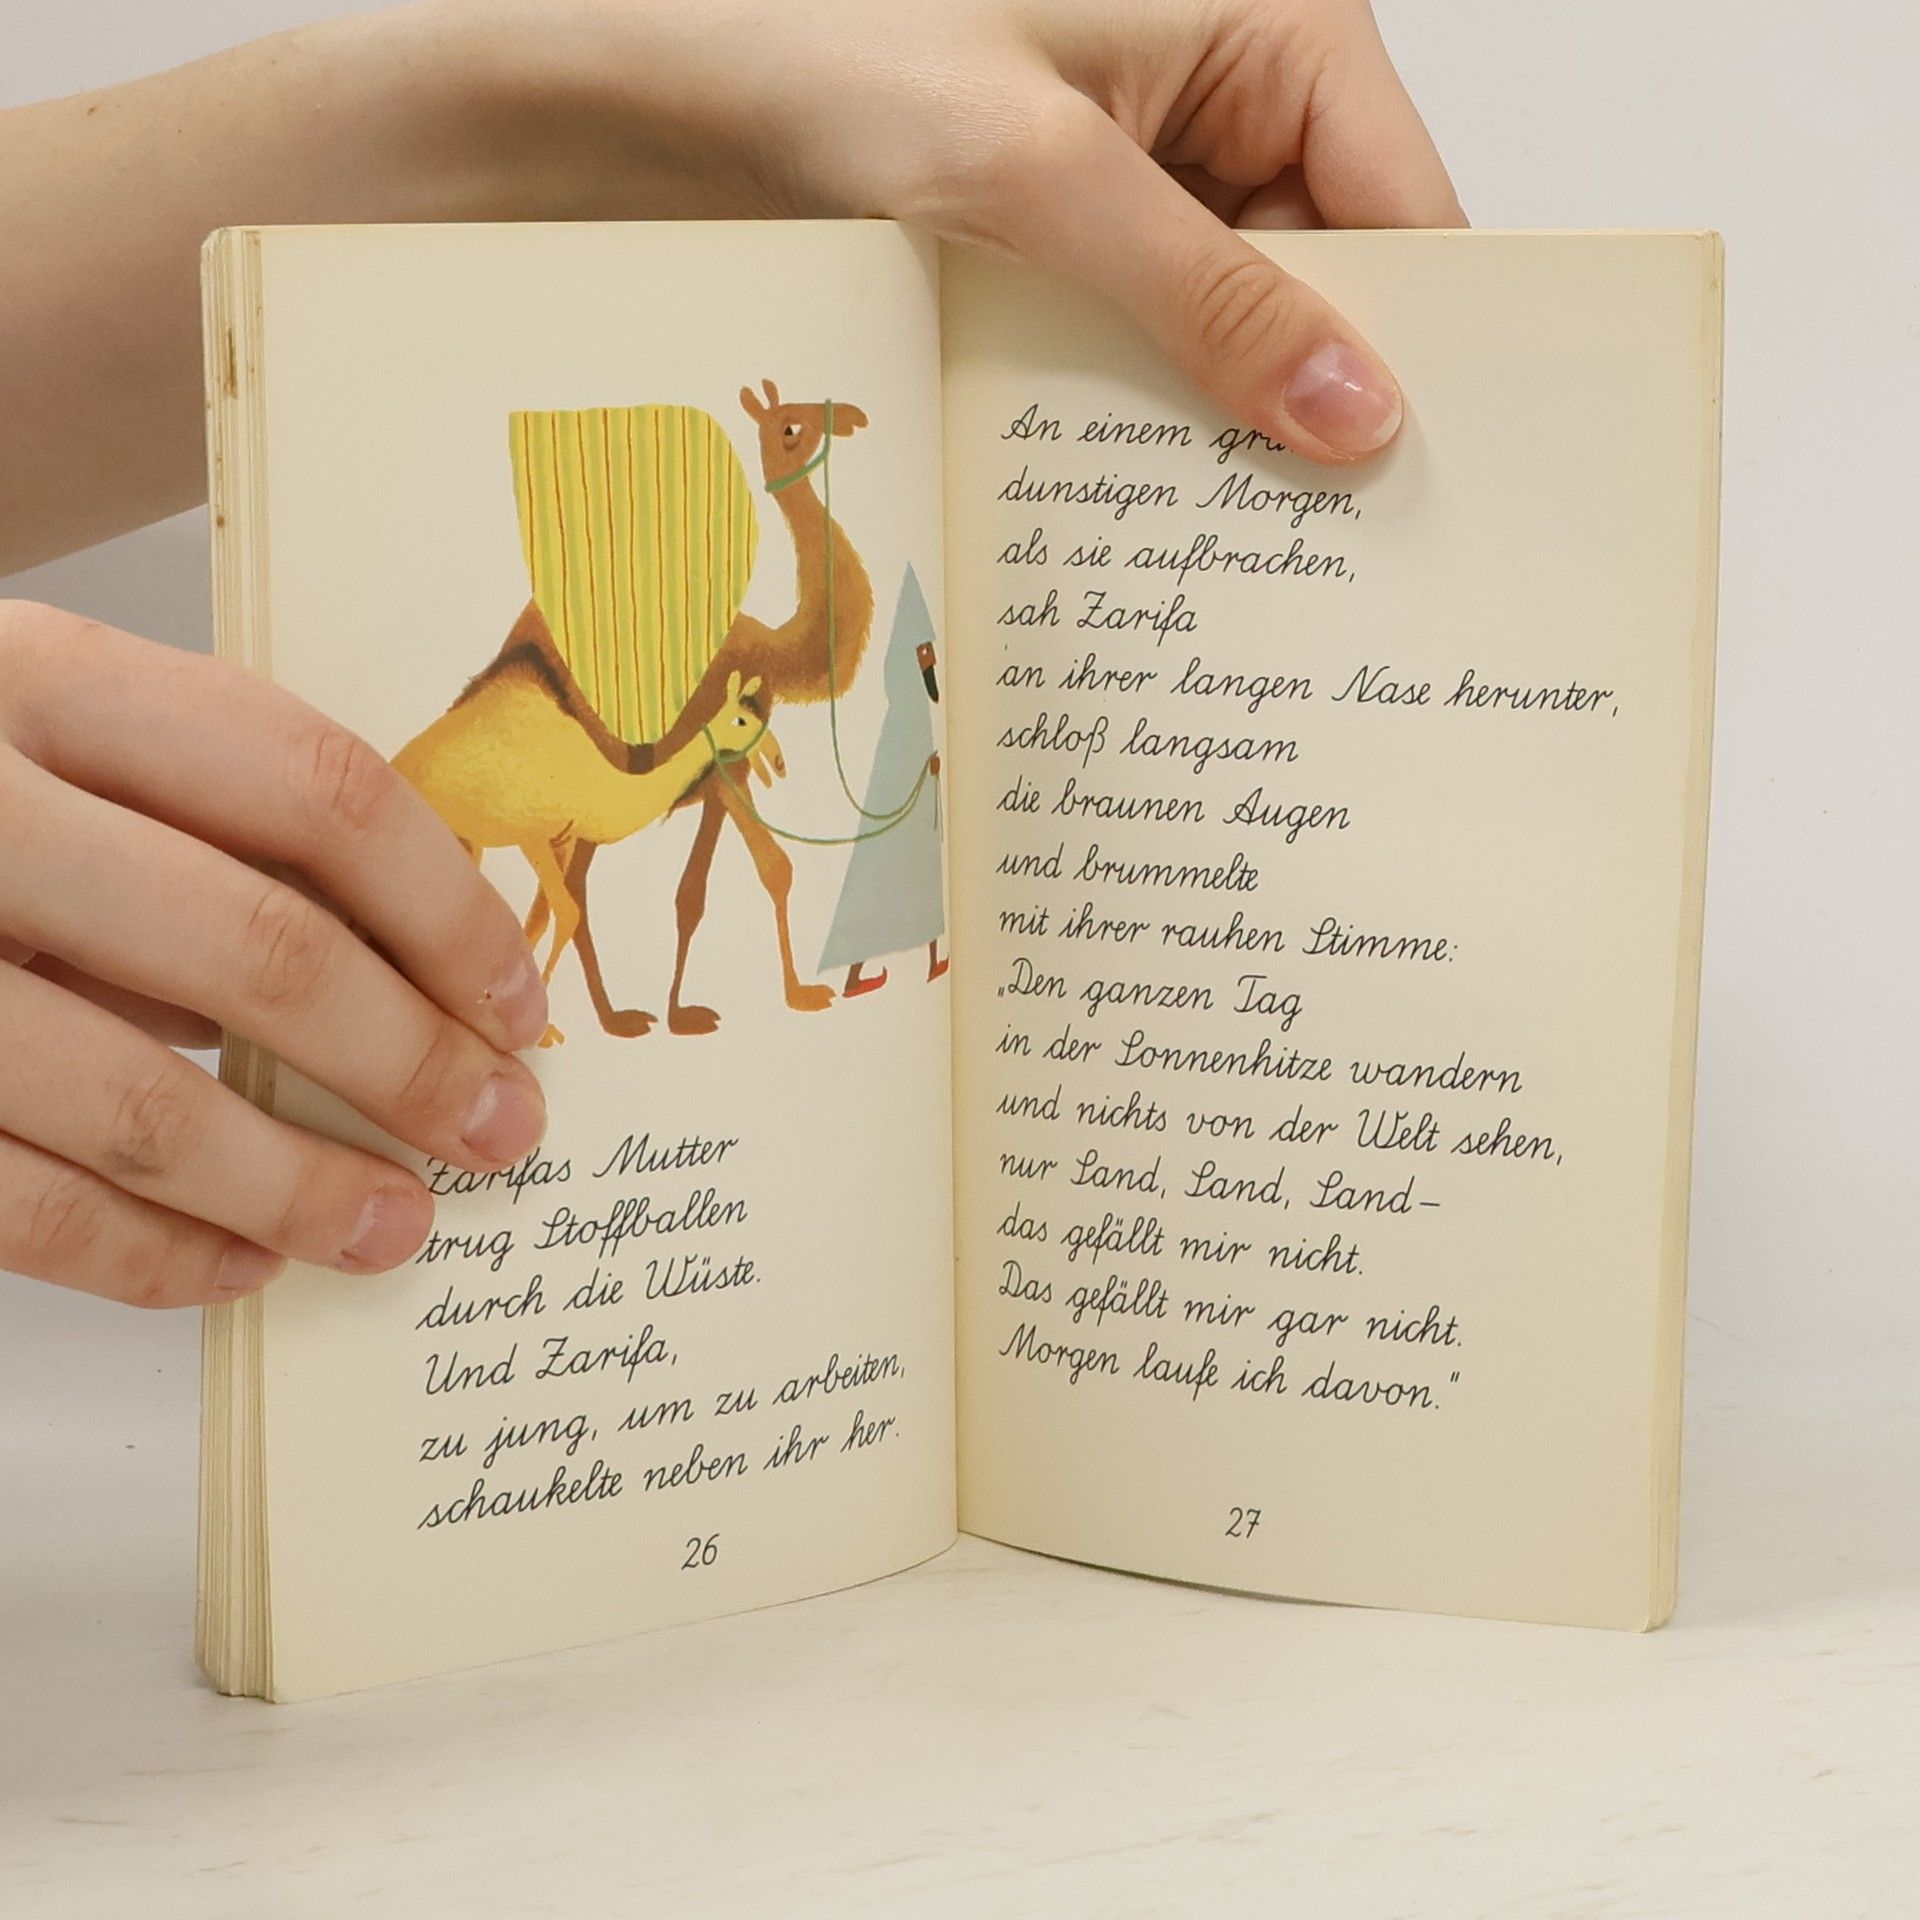 Zarifas Mutter
trug Stoffballen
durch die Wüste.
Und Zarifa,
zu jung, um zu arbeiten,
schaukelte neben ihr her.
26
An einem
dunstigen Morgen,
als sie aufbrachen,
sah Zarifa
an ihrer langen Nase herunter,
schloß langsam
die braunen Augen
und brummelte
mit ihrer rauhen Stimme:
„Den ganzen Tag
in der Sonnenhitze wandern
und nichts von der Welt sehen,
nur Sand, Sand, Sand–
das gefällt mir nicht.
Das gefällt mir gar nicht.
Morgen laufe ich davon."
27